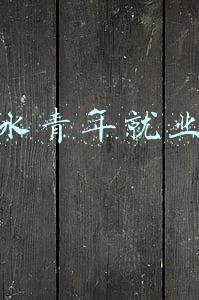 水青年就业